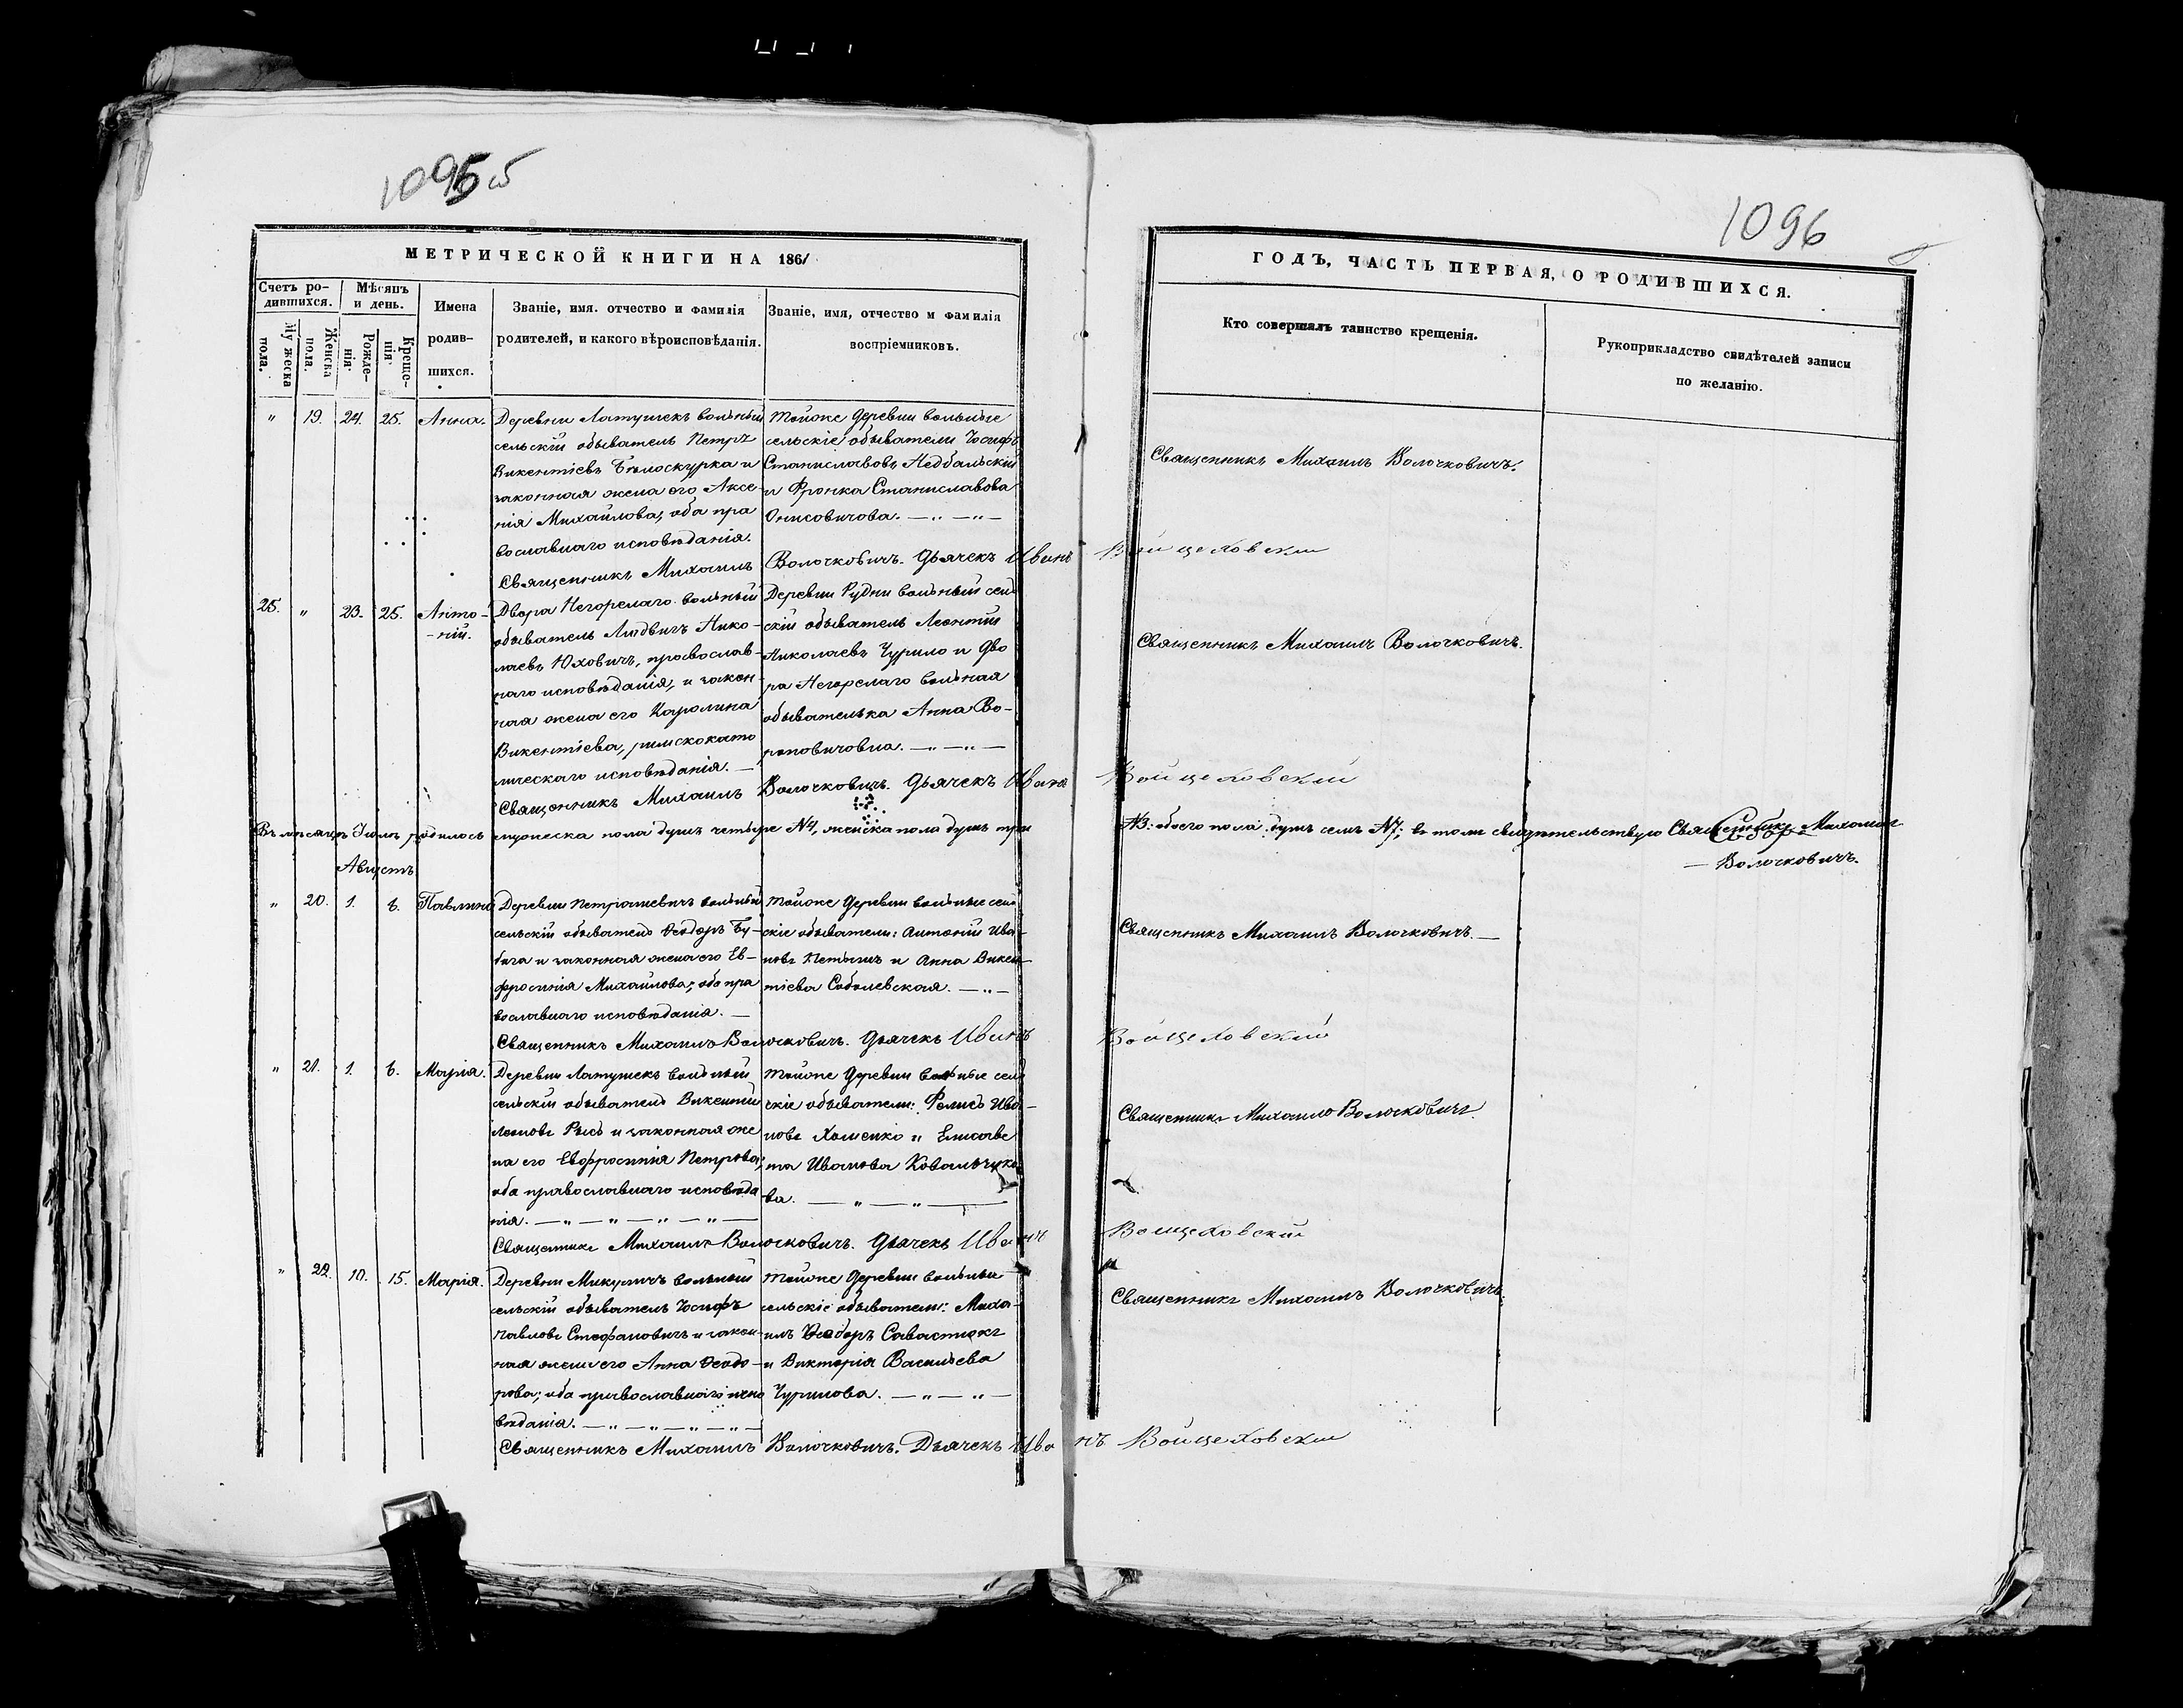 1095 об
1096
МЕТРИЧЕСКОЙ КНИГИ НА 1861
ГОДЪ, ЧАСТЬ ПЕРВАЯ, О РОДИВШИХСЯ.
Счетъ ро-
дившихся.
Мужеска
пола.
Женска
пола.
Мѣсяцъ
и день.
Рожде-
нія.
Креще-
нія.
Имена
родив-
шихся.
Званіе, имя. отчество и фамилія
родителей, и какого вѣроисповѣданія.
Званіе, имя, отчество и фамилія
воспріемниковъ.
Кто совершалъ таинство крещенія.
Рукоприкладство свидѣтелей записи
по желанію.
" 19. 24. 25. Анна.
Деревни Латушекъ вольный
сельскій обыватель Петръ
Викентіевъ Бѣлоскурка и
законная жена его Аксе-
нія Михайлова, оба пра
вославнаго исповѣданія.
Тойже деревни вольные
сельскіе обыватели Іосифъ
Станиславовъ Недбальскій
и Франка Станиславова
Онисовичова. — " — " —
Священникъ Михаилъ Волочковичъ.
Священникъ Михаилъ Волочковичъ. Дьячекъ Иванъ Войцеховскій
25. " 23. 25. Анто-
-ній.
Двора Негорелаго вольный
обыватель Людвигъ Нико-
лаевъ Юховичъ, православ-
наго исповѣданія, и закон-
ная жена его Каролина
Викентіева, римскокато
лическаго исповѣданія. —
Деревни Рудни вольный сель
скій обыватель Леонтій
Николаевъ Чурило и дво
ра Негорелаго вольная
обывателька Анна Во-
роновичовна. — " — " —
Священникъ Михаилъ Волочковичъ.
Священникъ Михаилъ Волочковичъ. Дьячекъ Иванъ Войцеховскій
Въ мѣсяцѣ Іюлѣ родилось мужеска пола душъ четыре №4, женска пола душъ три №3. обоего пола душъ семь №7; въ томъ свидѣтельствую Священникъ Михаилъ
— Волочковичъ.
Августъ
" 20. 1. 6. Павлина
Деревни Петрашевичъ вольный
сельскій обыватель Ѳеодоръ
и законная жена его Ев-
фросинія Михайлова; оба пра
вославнаго исповѣданія. —
Тойже деревни вольные сель
скіе обыватели: Антоній Ива-
новъ и Анна Викен-
тіева Соболевская. — " —
Священникъ Михаилъ Волочковичъ. —
Священникъ Михаилъ Волочковичъ. Дьячекъ Иванъ Войцеховскій
" 21. 1. 6. Марія.
Деревни Латушекъ вольный
сельскій обыватель Викентій
Леоновъ Рысь и законная же
на его Евфросинія Петрова;
оба православнаго исповѣда
нія. — " — " — " — " —
Тойже деревни вольные сель
скіе обыватели: Феликсъ Ива-
новъ Хоменко и Елисаве
та Иванова Ковальчуко
ва. — " — " —
Священникъ Михаилъ Волочковичъ.
Священникъ Михаилъ Волочковичъ. Дьячекъ Иванъ Войцеховскій
" 22. 10. 15. Марія.
Деревни Микуличъ вольный
сельскій обыватель Іосифъ
Павловъ Стефановичъ и закон-
ная жена его Анна Ѳеодо-
рова; оба православнаго испо
вѣданія. — " — " — " — " —
Тойже деревни вольные
сельскіе обыватели: Миха-
илъ Ѳеодоръ Савастюкъ
и Викторія Васильева
Чурилова. — " — " —
Священникъ Михаилъ Волочковичъ.
Священникъ Михаилъ Волочковичъ. Дьячекъ Иванъ Войцеховскій